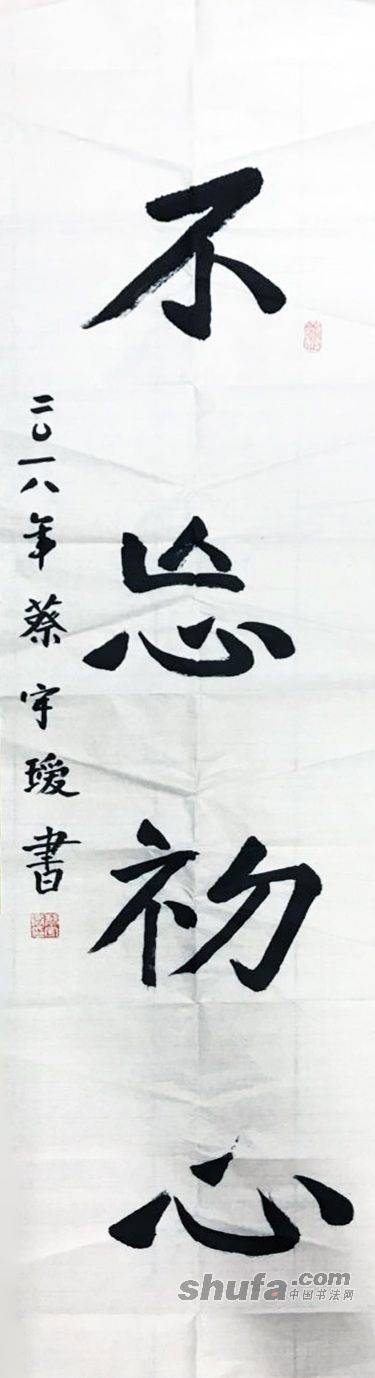 不忘初心
二〇一八年蔡宇瑷書
shufa.com
中国书法网